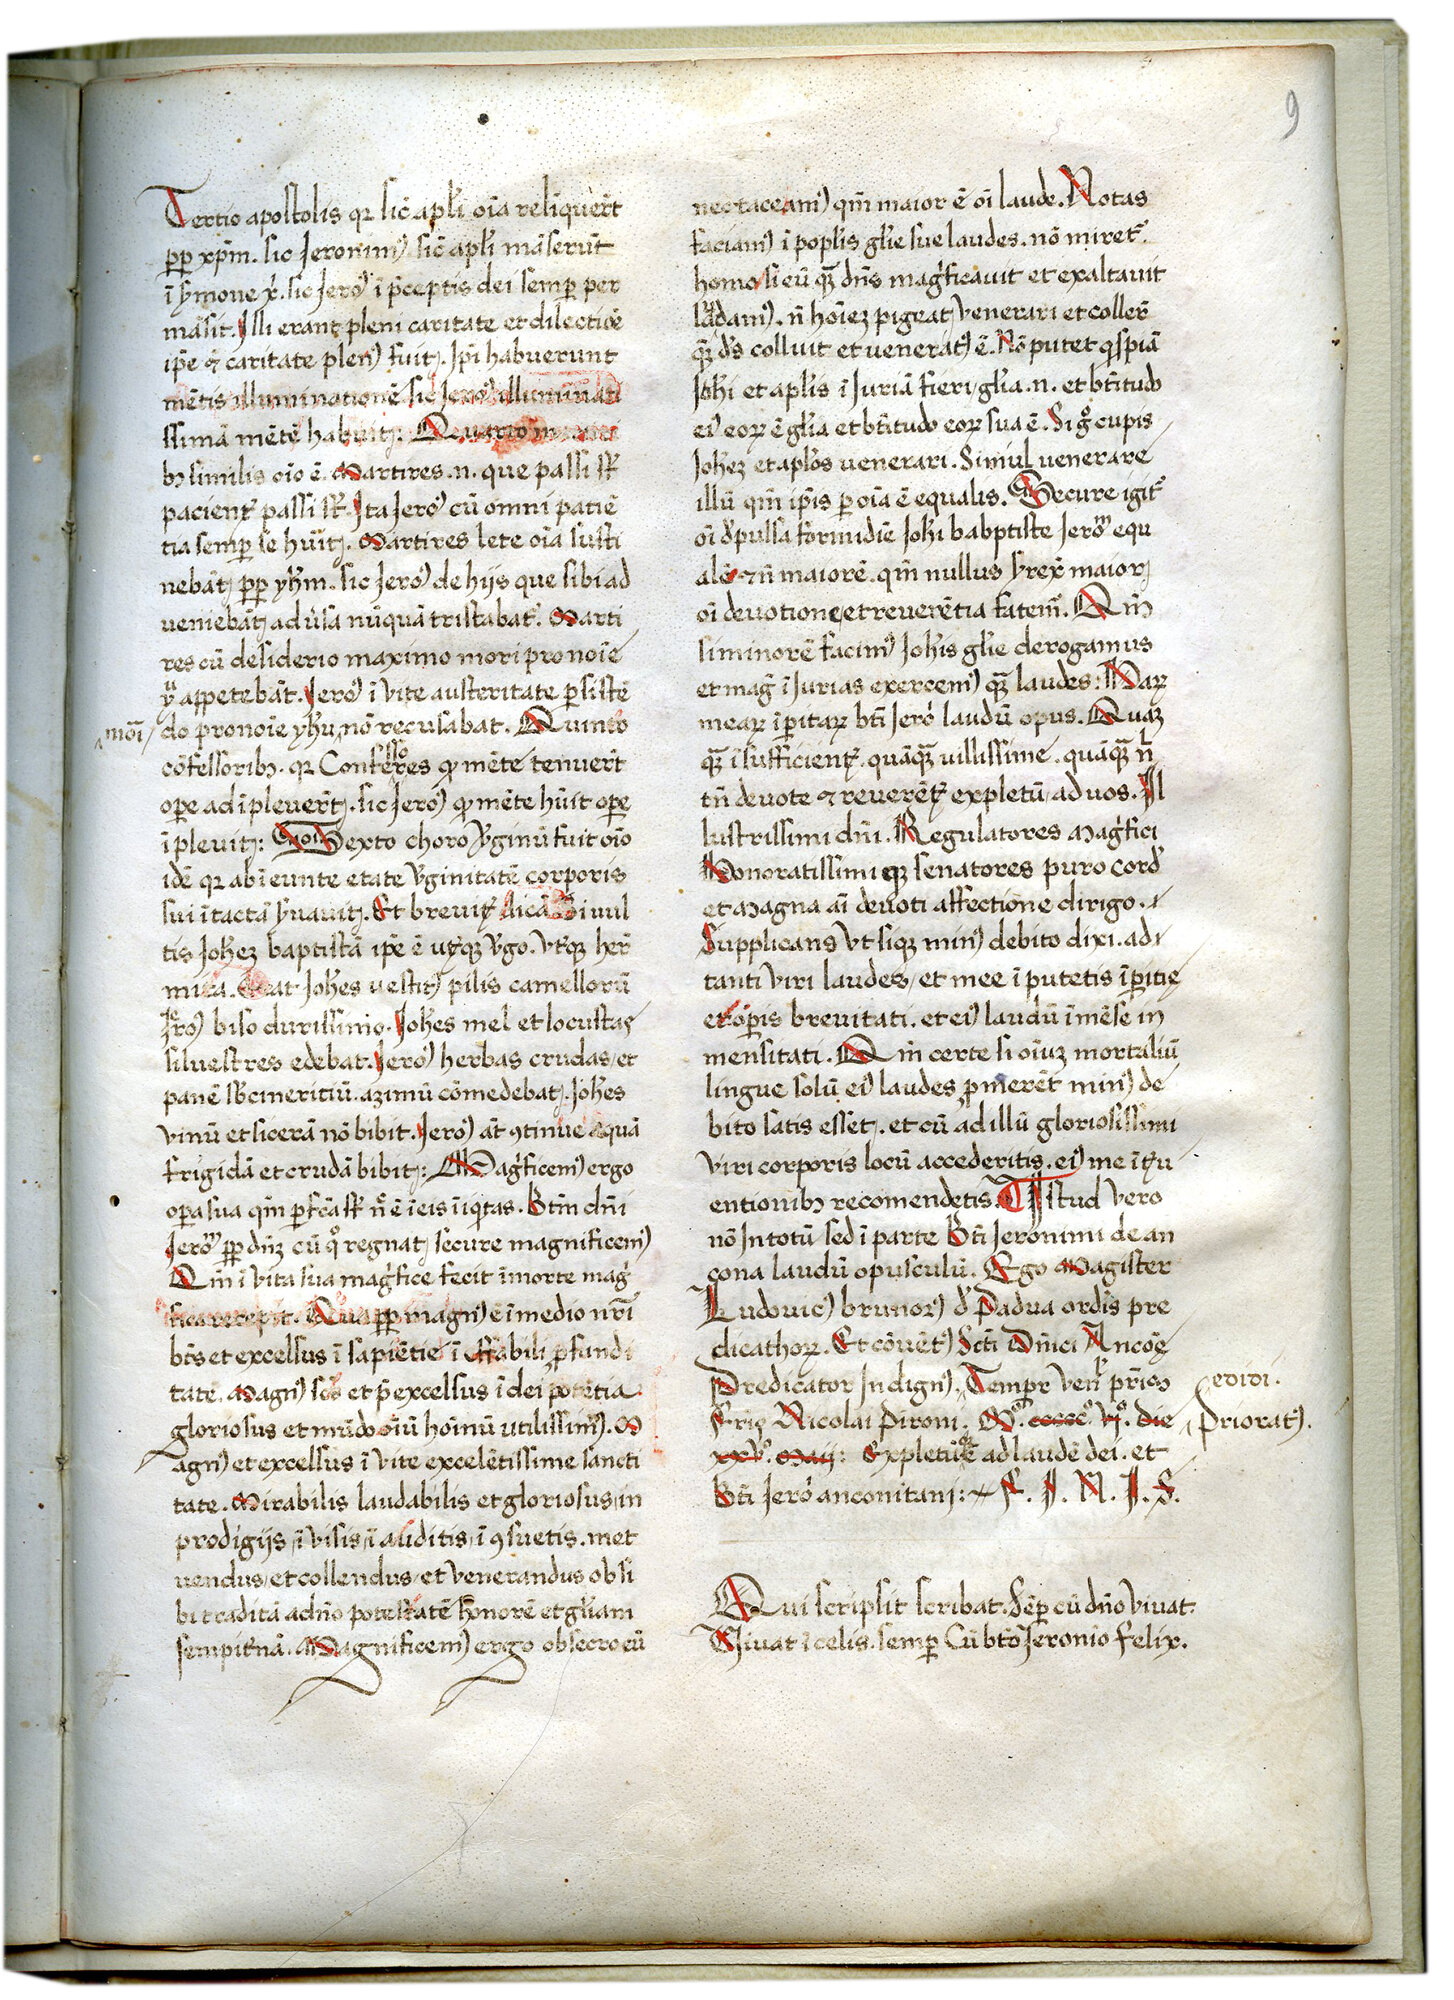 9
Tertio apostolis qꝛ sic̄ apl̄i oīa reliquer̄t
ꝓp xp̄m. sic Jeronimꝰ. sic̄ apl̄i māserūt
ī s̄mone x̄. sic Jeroꝰ ī p̄ceptis dei semꝑ per
māsit. Illi erant pleni caritate et dilectiōe
ip̄e ⁊ caritate plenꝰ fuit. Ip̄i habuerunt
mētis illuminationē sic Jeroꝰ illuminati
ssimā mētē habuit: Quarto
bꝫ similis oīo ē. Martires .n. que passi sf̄
pacient̄ passi sf̄. Ita Jeroꝰ cū omni patiē
tia semꝑ se hūit. Martires lete oīa susti
nebāt ꝓp yh̄m. sic Jeroꝰ de hijs que sibi ad
veniebāt adv̄sa nūquā tristabat᷑. Marti
res cū desiderio maximo mori pro noīe
appetebāt. Jeroꝰ ī vite austeritate ꝑsistē
^moī/ do pro noīe yh̄u nō recusabat. Quinto
cōfessoribꝫ. qꝛ Confessores qꝫ mēte tenuer̄t
oꝑe adīpleuer̄t. sic Jeroꝰ qꝫ mēte hūit oꝑe
īpleuit: Sexto choro v̄ginū fuit oīo
idē qꝛ ab īeunte etate v̄ginitatē corporis
sui ītactā s̄uauit. Et breuit᷑ dicā. Si vul
tis Joh̄eꝫ baptistā ip̄e ē vt̄qꝫ v̄go. vt̄qꝫ her̄
mita. Erat Joh̄es vestitꝰ pilis camellorū
Jeroꝰ biso durissimo. Joh̄es mel et locustas
siluestres edebat. Jeroꝰ herbas crudas, et
panē sb̄cineritiū. azimū cōmedebat. Joh̄es
vinū et sicerā nō bibit. Jeroꝰ āt ꝯtinue aquā
frigidā et crudā bibit: Maḡficemꝰ ergo
oꝑa sua qm̄ ꝑfc̄a sf̄ n̄ ē ī eis īiq̄tas. Bt̄m dn̄i
Jeroᵐ ꝓp dn̄ꝫ cū qᵒ regnat, secure magnificemꝰ
Qm̄ ī vita sua mag̓fice fecit ī morte mag̓
fica recepit. Quaꝓp magnꝰ ē ī medio nr̄i
bt̄s et excelsus ī sapiētie ī effabili ꝓfundi
tate. Magnꝰ sc̄s et p̄excelsus ī dei potētia
gloriosus et mūdo oīū hoīnū utilissimꝰ. M
agnꝰ et excelsus ī vite excelētissime sancti
tate. Mirabilis laudabilis et gloriosus, in
prodigijs, ī visis, ī auditis, ī ꝯsuetis. met
uendus, et collendus, et venerandus ob si
bi traditā a dn̄o potestatē honorē et gl̄iam
sempit̄nā. Magnificemꝰ ergo obsecro eū
nec taceamꝰ qm̄ maior ē oī laude. Notas
faciamꝰ ī popl̄is gl̄ie sue laudes. nō miret᷑
homo si eū qꝫ dn̄s mag̓ficauit et exaltauit
laudamꝰ. n̄ hoīeꝫ pigeat, venerari et coller̄
qꝫ d̄s colluit et veneratꝰ ē. Nō putet qͥspiā
Joh̄i et apl̄is ī Juriā fieri gl̄ia .n. et bt̄itudo
eiꝰ eoꝝ ē gl̄ia et bt̄itudo eoꝝ sua ē. Si gͦ cupis
Joh̄eꝫ et apl̄os venerari. Simul venerare
illū qm̄ ip̄is ꝑ oīa ē equalis. Secure igit᷑
oī d̓pulsa formidīe Joh̄i babptiste Jeroᵐ equ
alē ⁊ n̄ maiorē. qm̄ nullus s̄rexit maior
oī devotione, et reverētia fatem̄. Qm̄
si minorē facimꝰ Joh̄is gl̄ie derogamus
et mag̓ īJurias exercemꝰ qꝫ laudes: Haꝝ
meaꝝ īꝑitaꝝ bt̄i Jeroⁱ laudū opus. Quaꝫ
qꝫ īsufficient᷑. quāqꝫ villissime. quāqꝫ n̄
tn̄ devote ⁊ reverēt᷑ expletū, ad vos. Il
lustrissimi dn̄i. Regulatores Mag̓fici
Honoratissimi qꝫ senatores puro cord̓
et Magna aī devoti affectione dirigo.
Supplicans vt siqꝫ minꝰ debito dixi. ad
tanti viri laudes, et mee īputetis īꝑitię
et oꝑis brevitati. et eiꝰ laudū īmēse in
mensitati. Qm̄ certe si oīuꝫ mortaliū
lingue solū eiꝰ laudes ꝓmerēt minꝰ de
bito satis eēt. et cū ad illū gloriosissimi
viri corporis locū accederitis. eiꝰ me īt̄u
entionibꝫ recomendetis. Istud vero
nō In totū sed ī parte Bt̄i Jeronimi de an
cona laudū opusculū. Ego Magister
Ludovicꝰ brunorꝰ d̓ Padua ordīs pre
dicathoꝝ. Et cōvētꝰ Sc̄ti Dn̄ici Ancōę
Predicator Indignꝰ, Tempor̄ ven̄ pr̄ioꝫ edidi.
fr̄is Nicolai Pironi. Mᵒ.ccccᵒ.vjᵒ. die Prioratꝰ.
xxvᵒ. Maij: Expletū ad laudē dei. et
Bt̄i Jeroⁱ anconitani: F. I. N. I. S.
Qui scripsit scribat. Sēꝑ cū dn̄o vivat.
Vivat ī celis. semꝑ Cū bt̄o Jeronio felix.